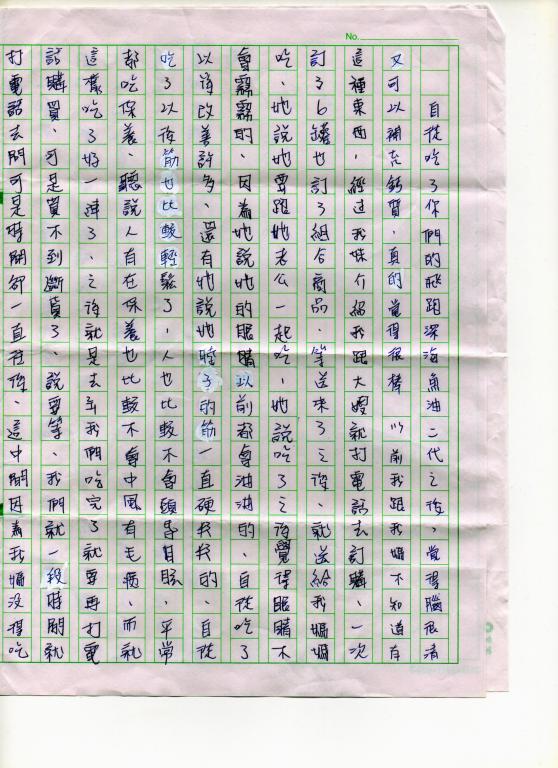 No.
自從吃了你們的飛跑深海魚油二代之後，覺得腦很清
又可以補充鈣質，真的覺得很棒，以前我跟我媽不知道有
這種東西，經過我妹介紹我跟大嫂就打電話去訂購，一次
訂了6罐也訂了組合商品，等送來了之後、就送給我媽媽
吃、她說她要跟她老公一起吃，她說吃了之後覺得眼睛不
會霧霧的、因為她說她的眼睛以前都會油油的、自從吃了
以後改善許多、還有她說她脖子的筋一直硬拐拐的、自從
吃了以後筋也比較輕鬆了，人也比較不會頭暈目眩、平常
都吃保養、聽說人有在保養也比較不會中風有毛病、而就
這樣吃了好一陣了、之後就是去到我們吃完了就要再打電
話購買、可是買不到斷貨了、說要等、我們就一段時間就
打電話去問可是時間卻一直在等、這中間因為我媽沒得吃